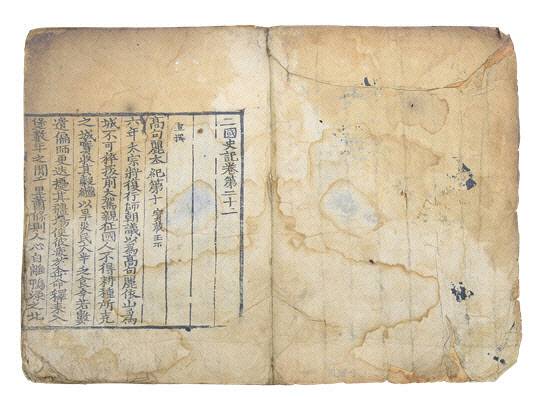 二國史記卷第二十一
宣撰
高句麗本紀第十 寶臧王下
六年太宗將復行師朝議以爲高句麗依山爲
城不可猝拔前大駕親征國人不得耕種所克
之城實收其穀繼以旱災民太半乏食今若數
遣偏師更迭擾其疆使彼疲於奔命釋耒入
堡數年之間千里蕭條則人心自離鴨淥之北